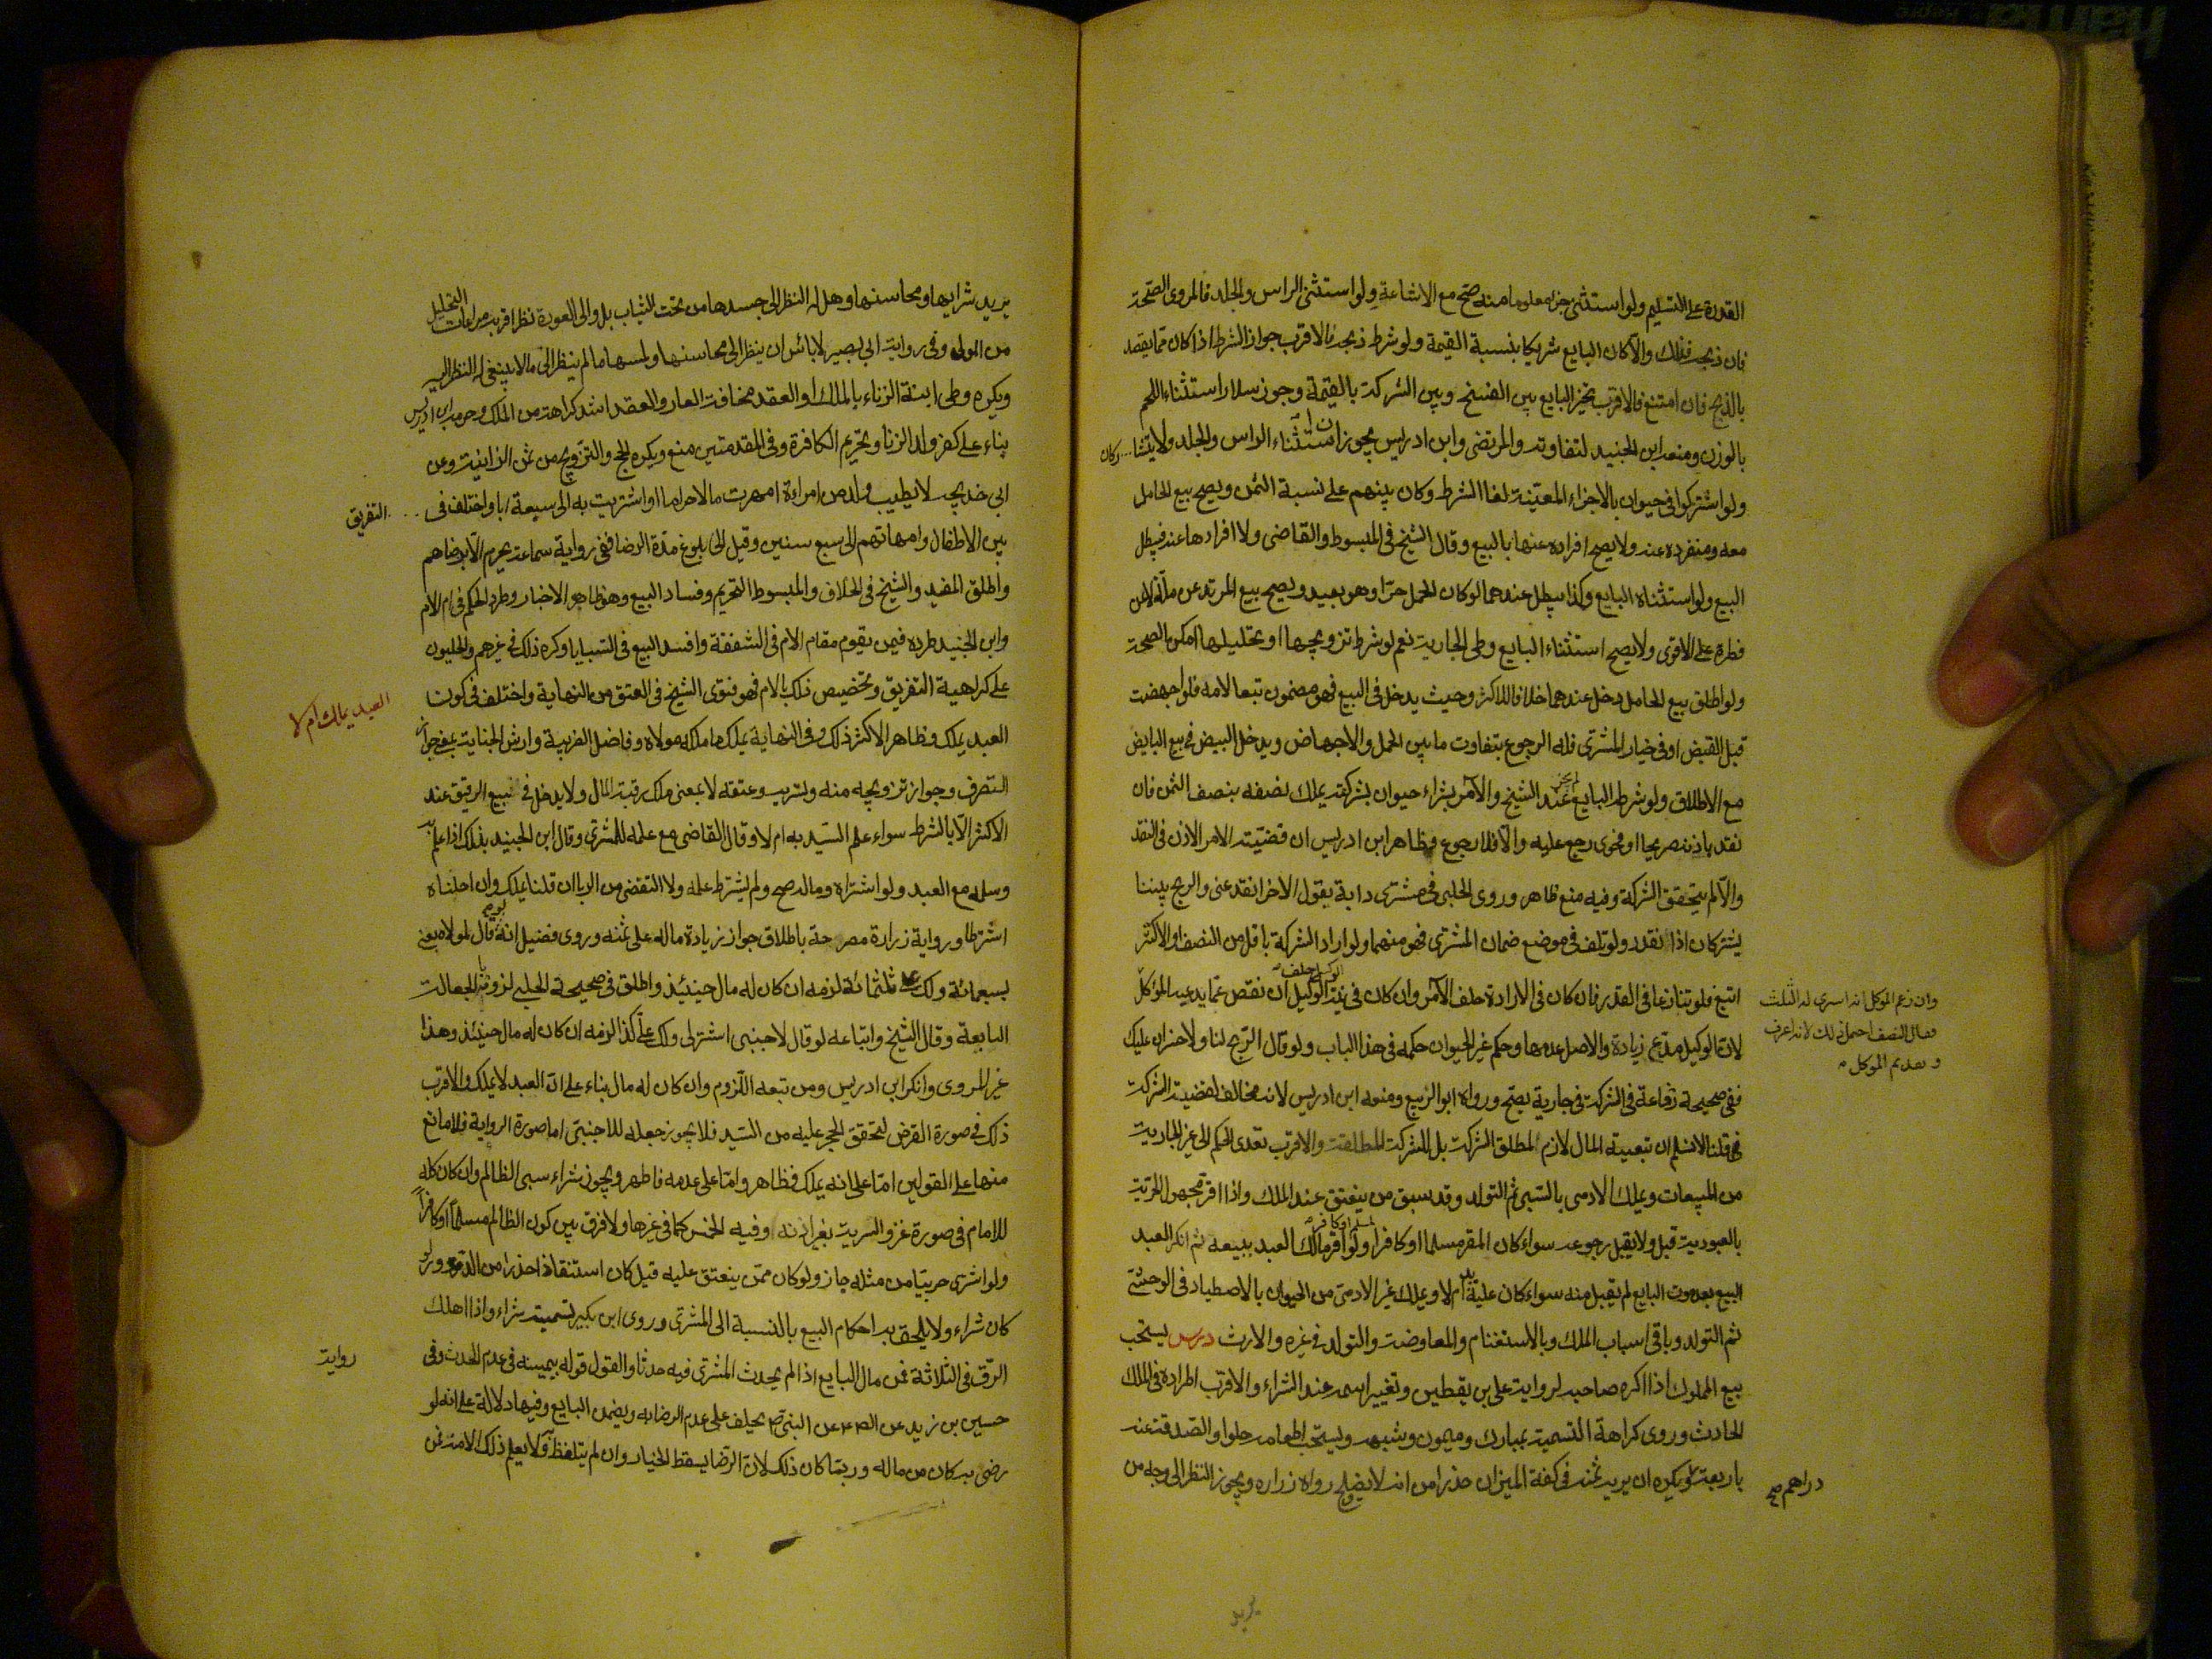 القدرة على التسليم ولو استثنى جزءا معلوما منه صح مع الاشاعة ولو استثنى الراس والجلد فالمروى الصحة
فان ذبحه فذلك والا كان البايع شريكا بنسبة القيمة ولو شرط ذبحه فالاقرب جواز الشرط اذا كان مما يقصد
بالذبح فان امتنع فالاقرب تخير البايع بين الفسخ وبين الشركة بالقيمة وجوز سلار استثناء اللحم
بالوزن ومنعه ابن الجنيد لتفاوته والمرتضى وابن ادريس يجوزان استثناء الراس والجلد ولا يتشاركان
ولو اشتركوا فى حيوان بالاجزاء المعينة لغا الشرط وكان بينهم على نسبة الثمن ويصح بيع الحامل
معه ومنفردة عنه ولا يصح افراده عنها بالبيع وقال الشيخ فى المبسوط والقاضى ولا افرادها عنه فيبطل
البيع ولو استثناه البايع وكذا يبطل عندهما لو كان الحمل حرا وهو بعيد ويصح بيع المرتد عن ملة لا عن
فطرة على الاقوى ولا يصح استثناء البايع وطى الجارية نعم لو شرط تزويجها او تحليلها امكن الصحة
ولو اطلق بيع الحامل دخل عندهما خلافا للاكثر وحيث يدخل فى البيع فهو مضمون تبعا لامه فلو اجهضت
قبل القبض او فى خيار المشترى فله الرجوع بتفاوت ما بين الحمل والاجهاض ويدخل البيض فى بيع البايض
مع الاطلاق ولو شرط البايع لم يجز عند الشيخ والآمر بشراء حيوان بشركته يملك نصفه بنصف الثمن فان
نقد باذنه صريحا او فحوى رجع عليه والا فلا رجوع وظاهر ابن ادريس ان قضية الامر الاذن فى النقد
والا لم يتحقق الشركة وفيه منع ظاهر وروى الحلبى فى مشترى دابة يقول لاخر انقد عنى والربح بيننا
يشتركان اذا نقد ولو تلف فى موضع ضمان المشترى فهو منهما ولو اراد الشركة باقل من النصف او الاكثر
اتبع فلو تنازعا فى القدر فان كان فى الارادة حلف الآمر وان كان فى نية الوكيل حلف الوكيل ان نقص عما يدعيه الموكل
لان الوكيل مدعى زيادة والاصل عدمها وحكم غير الحيوان حكمه فى هذا الباب ولو قال الربح لنا ولا خسران عليك
ففى صحيحة رفاعة فى الشركة فى جارية يصح ورواه ابو الربيع ومنعه ابن ادريس لانه مخالف لقضية الشركة
قلنا لا نسلم ان تبعية المال لازم لمطلق الشركة بل للشركة المطلقة والاقرب تعدى الحكم الى غير الجارية
من المبيعات ويملك الآدمى بالسبى ثم التولد وقد سبق من ينعتق عند الملك واذا اقر مجهول الحرية
بالعبودية قبل ولا يقبل رجوعه سواء كان المقر مسلما او كافرا ولو اقر مالك العبد ببيعه ثم انكر العبد
البيع بعد موت البايع لم يقبل منه سواء كان عليه يد ام لا ويملك غير الآدمى من الحيوان بالاصطياد فى الوحشى
ثم التولد وباقى اسباب الملك وبالاستغنام والمعاوضة والتولد فى غيره والارث درس يستحب
بيع المملوك اذا اكره صاحبه لرواية على بن يقطين وتغيير اسمه عند الشراء والاقرب اطراده فى الملك
الحادث وروى كراهة التسمية بمبارك وميمون وشبهه ويستحب اطعامه حلوا والصدقة عنه
باربعة ويكره ان يريه ثمنه فى كفة الميزان حذرا من انه لا يفلح رواه زرارة ويجوز النظر الى وجه من
وان زعم الموكل انه اشترى له الثلث
فقال النصف احتمل ذلك لانه اعرف
وتقديم الموكل
دراهم صح
يريد
يريد شرايها ومحاسنها وهل له النظر الى جسدها من تحت الثياب بل والى العورة نظر اقربه مراعات التحليل
من المولى وفى رواية ابى بصير لا باس ان ينظر الى محاسنها ولمسها ما لم ينظر الى ما لا ينبغى له النظر اليه
ويكره وطى ابنة الزناء بالملك او العقد مخافة العار والعقد اشد كراهة من الملك وحرمه ابن ادريس
بناء على كفر ولد الزنا وتحريم الكافرة وفى المقدمتين منع ويكره الحج والتزويج من ثمن الزانية وعن
ابى خديجة لا يطيب ولد من امراءة امهرت مالا حراما او اشتريت به الى سبعة اباء واختلف فى التفريق
بين الاطفال وامهاتهم الى سبع سنين وقيل الى بلوغ مدة الرضاع ففى رواية سماعة يحرم الا برضاهم
واطلق المفيد والشيخ فى الخلاف والمبسوط التحريم وفساد البيع وهو ظاهر الاخبار وطرد الحكم فى ام الام
وابن الجنيد طرده فيمن يقوم مقام الام فى الشفقة وافسد البيع فى السبايا وكره ذلك فى غيرهم والحليون
على كراهية التفريق وتخصيص ذلك بالام فهو فتوى الشيخ فى العتق من النهاية واختلف فى كون
العبد يملك فظاهر الاكثر ذلك وفى النهاية يملك ما ملكه مولاه وفاضل الضريبة وارش الجناية بمعنى جواز
التصرف وجواز تزويجه منه وتسريه وعتقه لا بمعنى ملك رقبة المال ولا يدخل فى بيع الرقيق عند
الاكثر الا بالشرط سواء علم السيد به ام لا وقال القاضى مع علمه للمشترى وقال ابن الجنيد بذلك اذا علم به
وسلمه مع العبد ولو اشتراه وماله صح ولم يشترط علمه ولا التفصى من الربا ان قلنا يملك وان احلناه
اشترطا ورواية زرارة مصرحة باطلاق جواز زيادة ماله على ثمنه وروى فضيل انه لو قال لمولاه بعنى
بسبعمائة ولك على ثلثمائة لزمه ان كان له مال حينئذ واطلق فى صحيحة الحلبى لزوم الجعالة
البايعه وقال الشيخ واتباعه لو قال لاجنبى اشترنى ولك على كذا لزمه ان كان له مال حينئذ وهذا
غير المروى وانكر ابن ادريس ومن تبعه اللزوم وان كان له مال بناء على ان العبد لا يملك والاقرب
ذلك فى صورة الفرض لتحقق الحجر عليه من السيد فلا يجوز جعله للاجنبى اما صورة الرواية فلا مانع
منها على القولين اما على انه يملك فظاهر واما على عدمه فاظهر ويجوز شراء سبى الظالم وان كان كله
للامام فى صورة غزو السرية بغير اذنه او فيه الخمس كما فى غيرها ولا فرق بين كون الظالم مسلما او كافرا
ولو اشترى حربيا من مثله جاز ولو كان ممن ينعتق عليه قيل كان استنقاذا حذرا من الدور ولو
كان شراء ولا يلحق به احكام البيع بالنسبة الى المشترى وروى ابن بكير تسميته شراء واذا هلك
الرق فى الثلاثة فمن مال البايع اذا لم يحدث المشترى فيه حدثا والقول قوله بيمينه فى عدم الحدث وفى رواية
حسين بن زيد عن الص ع عن النبى ص يحلف على عدم الرضا به ويضمن البايع وفيها دلالة على انه لو
رضى به كان من ماله وربما كان ذلك لان الرضا يسقط الخيار وان لم يتلفظ به ولا يعلم ذلك الا منه فمن
العبد يملك ام لا